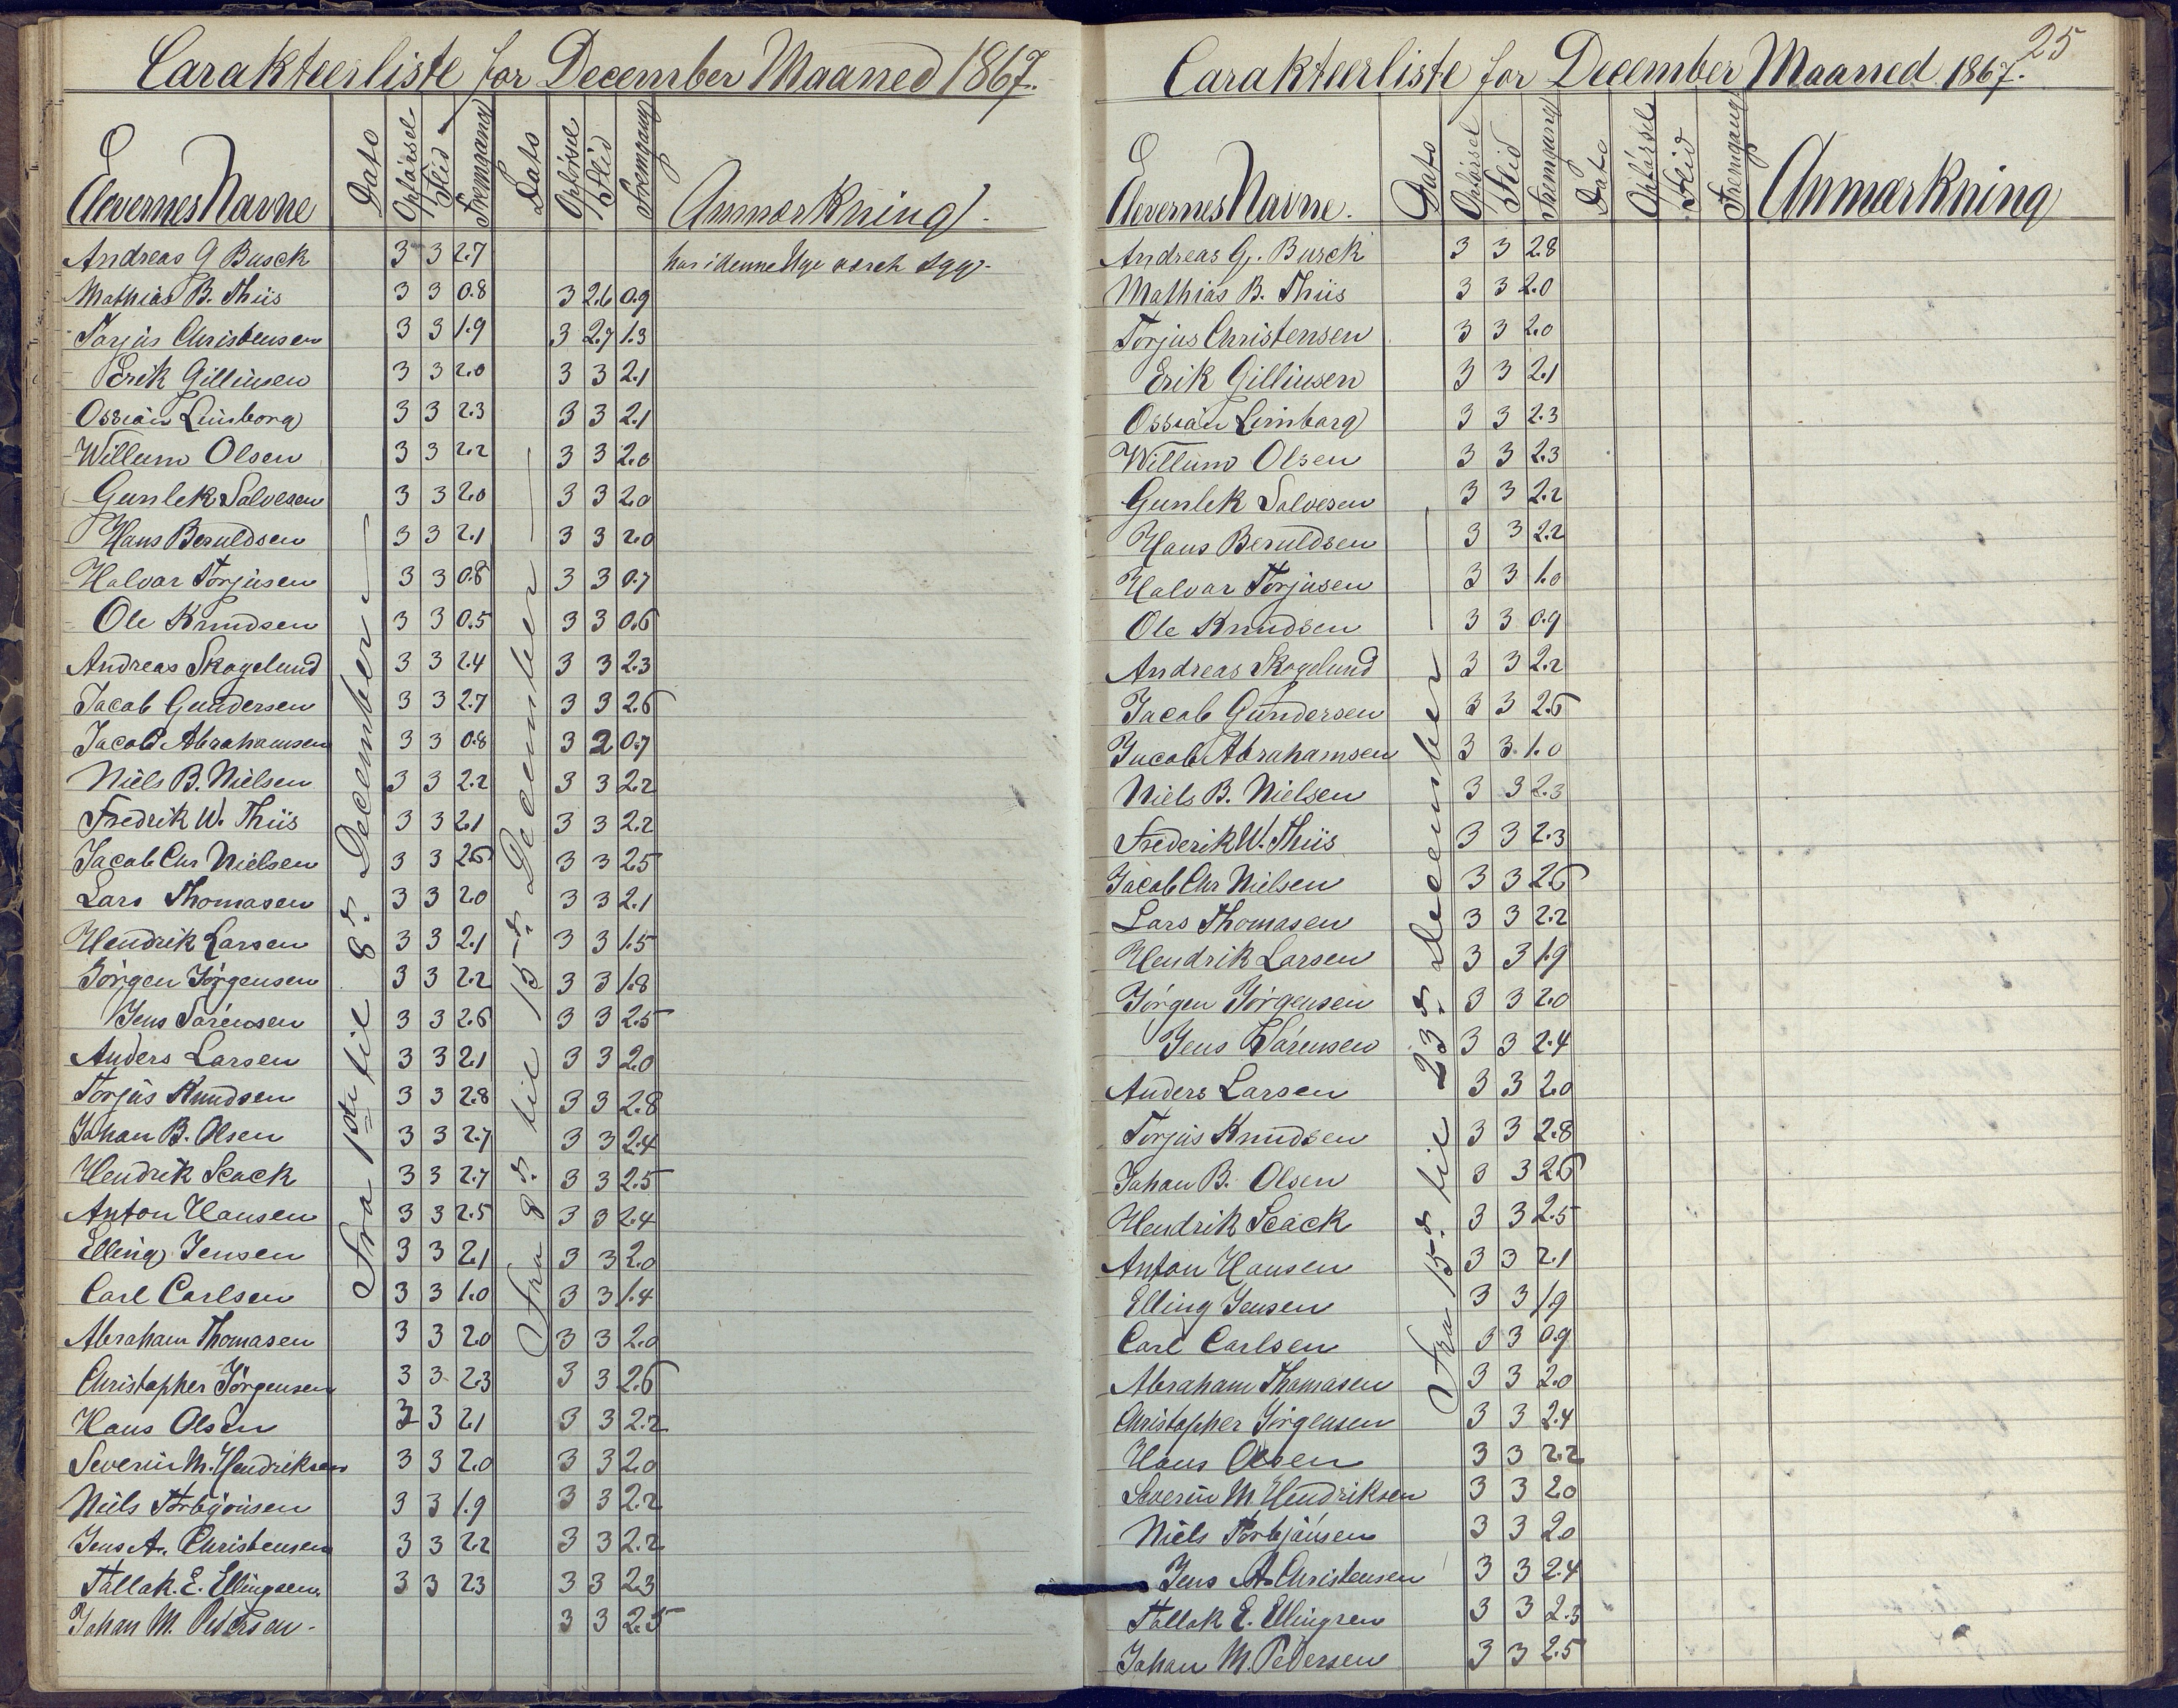 Carakteerliste for December Maaned 1867.
Elevernes Navne Dato Opförsel Flid Fremgang Dato Opförsel Flid Fremgang Anmærkning
Fra 1ste til 8de December
Fra 8de til 15de December
Andreas G Busck 3 3 2.7 har i denne Uge været syg.
Mathias B. Thiis 3 3 0.8 3 2.6 0.9
Torjus Christensen 3 3 1.9 3 2.7 1.3
Erik Gilliusen 3 3 2.0 3 3 2.1
Ossian Limborg 3 3 2.3 3 3 2.1
Willum Olsen 3 3 2.2 3 3 2.0
Gunlek Salvesen 3 3 2.0 3 3 2.0
Hans Beruldsen 3 3 2.1 3 3 2.0
Halvor Torjusen 3 3 0.8 3 3 0.7
Ole Knudsen 3 3 0.5 3 3 0.6
Andreas Skogelund 3 3 2.4 3 3 2.3
Jacob Gundersen 3 3 2.7 3 3 2.6
Jacob Abrahamsen 3 3 0.8 3 2 0.7
Niels B. Nielsen 3 3 2.2 3 3 2.2
Fredrik W. Thiis 3 3 2.1 3 3 2.2
Jacob Chr Nielsen 3 3 2.6 3 3 2.5
Lars Thomasen 3 3 2.0 3 3 2.1
Hendrik Larsen 3 3 2.1 3 3 1.5
Jörgen Jörgensen 3 3 2.2 3 3 1.8
Jens Sörensen 3 3 2.6 3 3 2.5
Anders Larsen 3 3 2.1 3 3 2.0
Torjus Knudsen 3 3 2.8 3 3 2.8
Johan B. Olsen 3 3 2.7 3 3 2.4
Hendrik Seack 3 3 2.7 3 3 2.5
Anton Hansen 3 3 2.5 3 3 2.4
Elling Jensen 3 3 2.1 3 3 2.0
Carl Carlsen 3 3 1.0 3 3 1.4
Abraham Thomasen 3 3 2.0 3 3 2.0
Christopher Jörgensen 3 3 2.3 3 3 2.6
Hans Olsen 3 3 2.1 3 3 2.2
Severin M. Hendriksen 3 3 2.0 3 3 2.0
Niels Torbjörnsen 3 3 1.9 3 3 2.2
Jens A. Christensen 3 3 2.2 3 3 2.2
Tallak. E. Ellingsen. 3 3 2.3 3 3 2.3
Johan M. Pedersen. 3 3 2.5
25
Carakteerliste for December Maaned 1867.
Elevernes Navne. Dato Opförsel Flid Fremgang Dato Opförsel Flid Fremgang Anmærkning
Fra 15de til 23de December
Andreas G. Busck 3 3 2.8
Mathias B. Thiis 3 3 2.0
Torjus Christensen 3 3 2.0
Erik Gilliusen 3 3 2.1
Ossian Limborg 3 3 2.3
Willum Olsen 3 3 2.3
Gunlek Salvesen 3 3 2.2
Hans Beruldsen 3 3 2.2
Halvor Torjusen 3 3 1.0
Ole Knudsen 3 3 0.9
Andreas Skogelund 3 3 2.2
Jacob Gundersen 3 3 2.6
Jacob Abrahamsen 3 3 1.0
Niels B. Nielsen 3 3 2.3
Frederik W. Thiis 3 3 2.3
Jacob Chr Nielsen 3 3 2.6
Lars Thomasen 3 3 2.2
Hendrik Larsen 3 3 1.9
Jörgen Jörgensen 3 3 2.0
Jens Sörensen 3 3 2.4
Anders Larsen 3 3 2.0
Torjus Knudsen 3 3 2.8
Johan B. Olsen 3 3 2.6
Hendrik Seack 3 3 2.5
Anton Hansen 3 3 2.1
Elling Jensen 3 3 1.9
Carl Carlsen 3 3 0.9
Abraham Thomasen 3 3 2.0
Christopher Jörgensen 3 3 2.4
Hans Olsen 3 3 2.2
Severin M Hendriksen 3 3 2.0
Niels Torbjörnsen 3 3 2.0
Jens A. Christensen 3 3 2.4
Tallak E. Ellingsen 3 3 2.3
Johan M. Pedersen 3 3 2.5